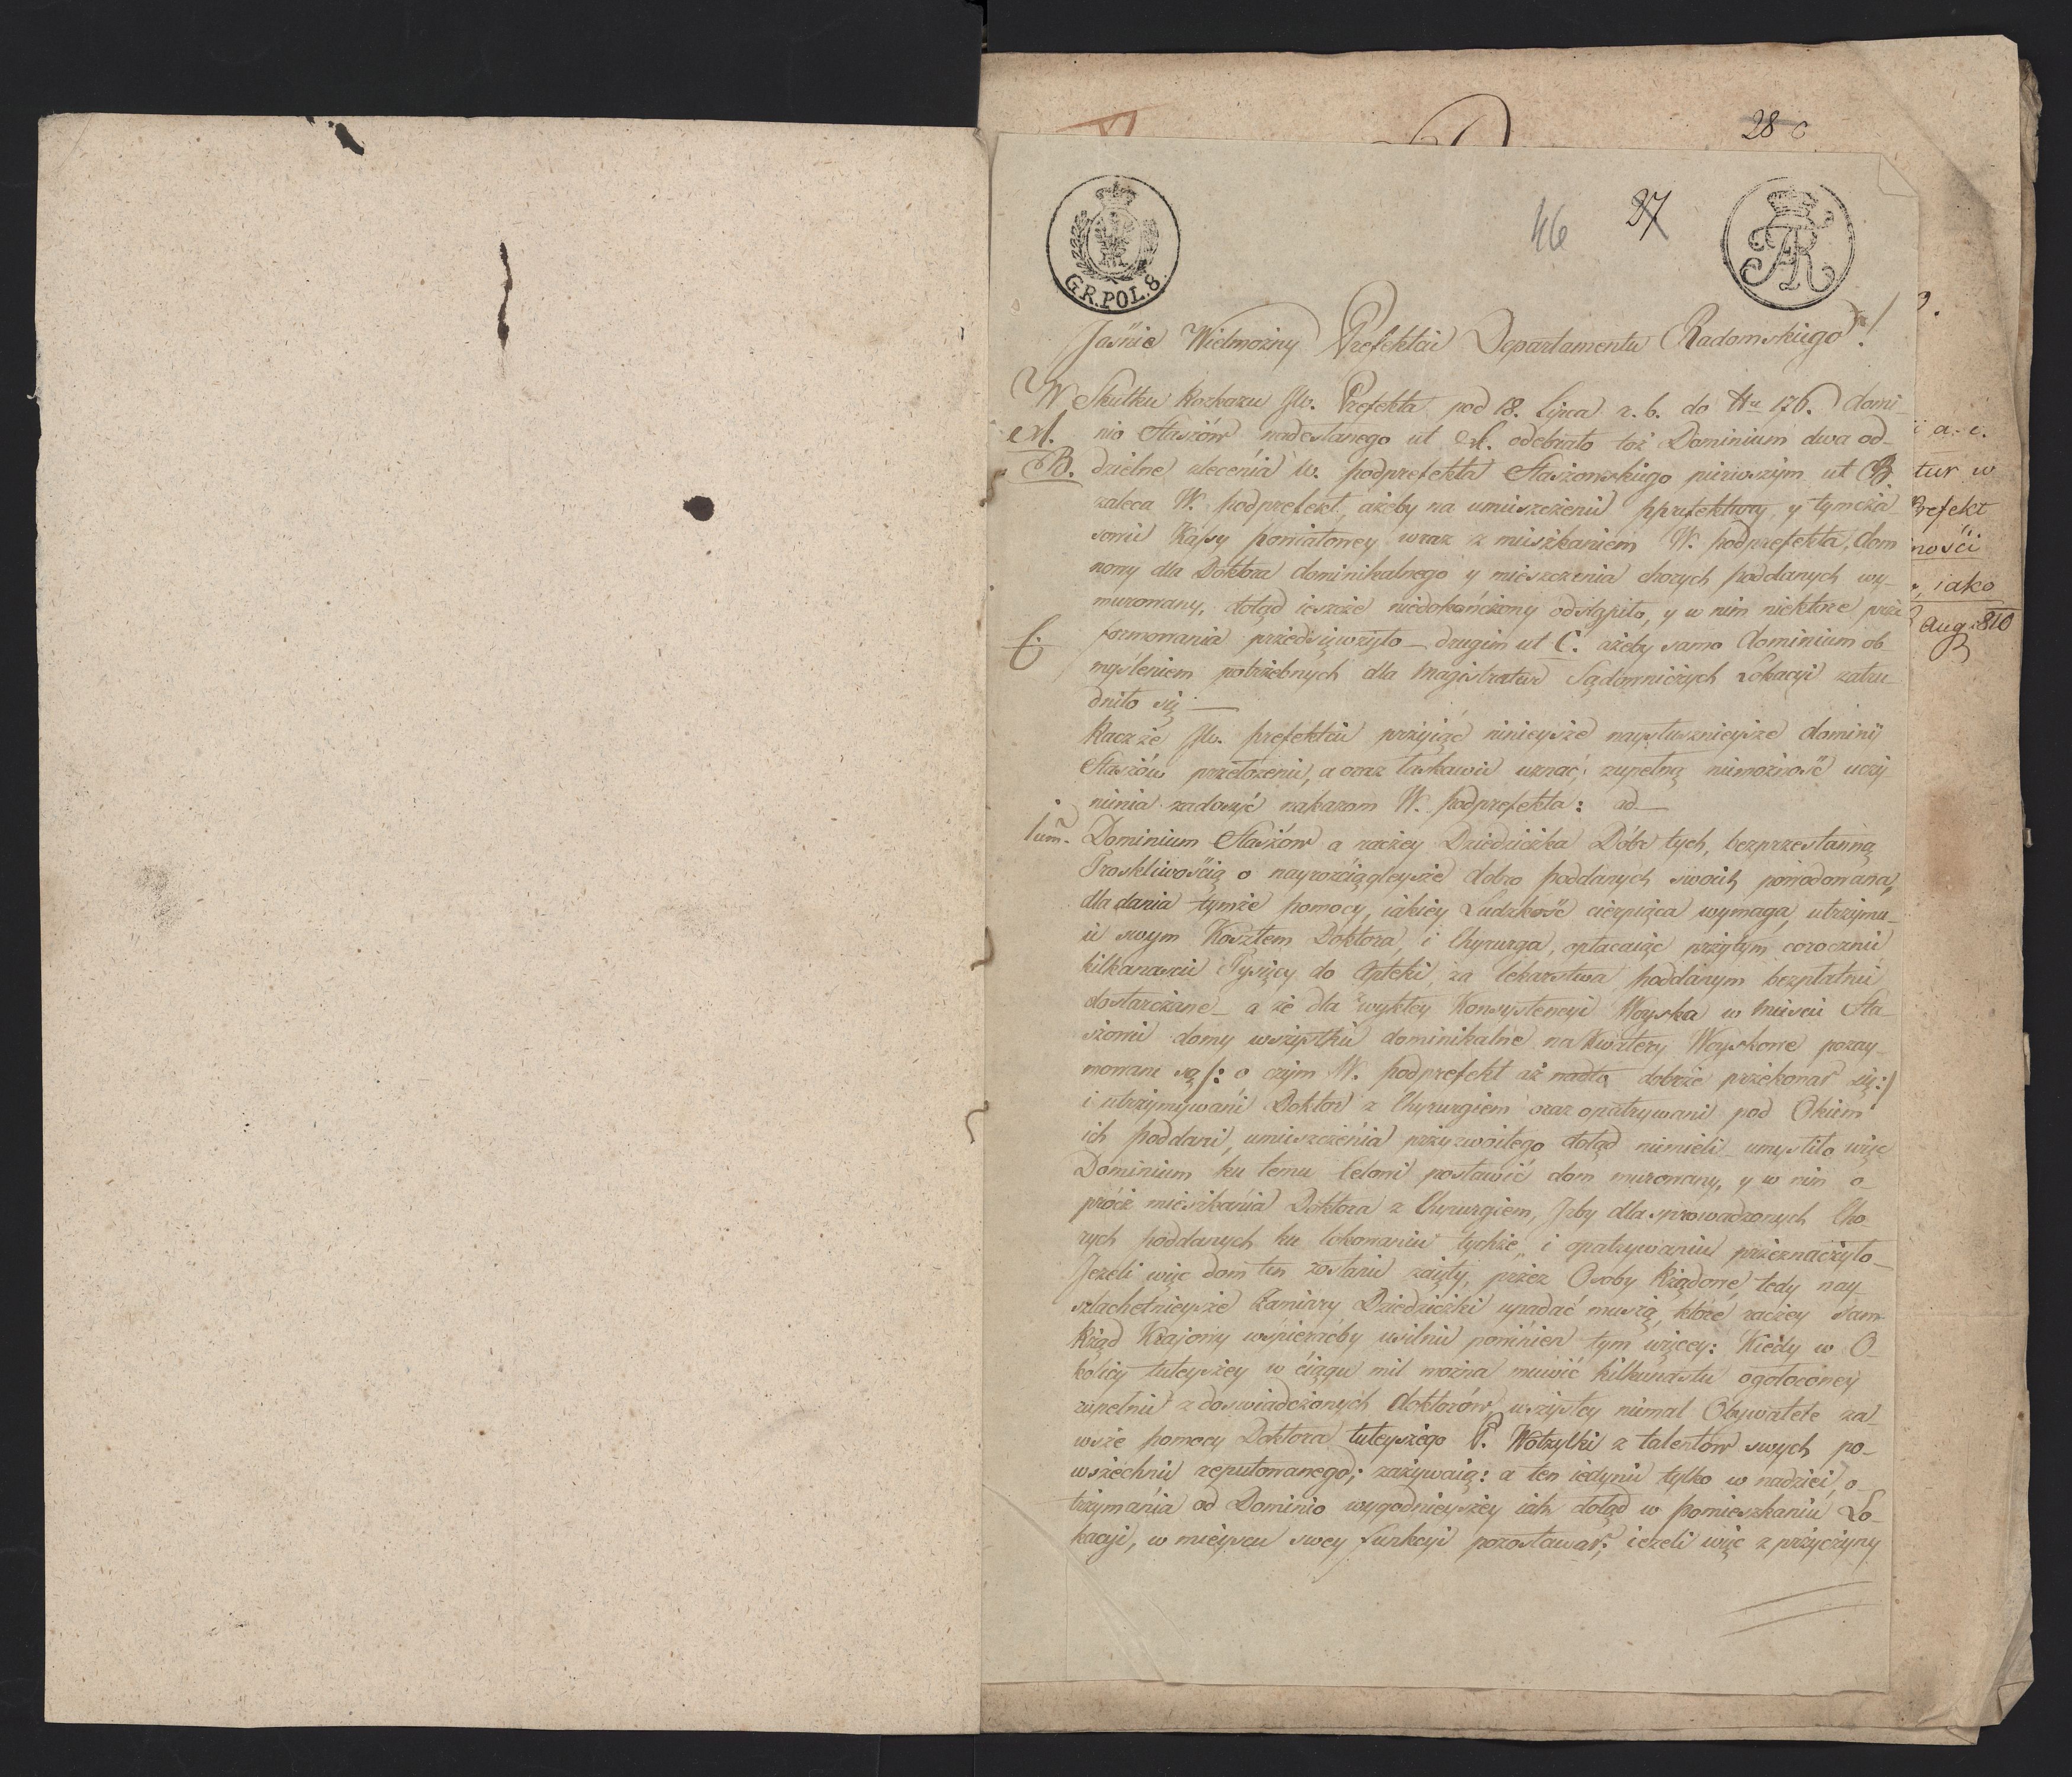 28
46 27
GR.POL.8.
FAR
Jaśnie Wielmożny Prefekcie Departamentu Radomskiego!
W Skutku Rozkazu JW. Prefekta pod 18. Lipca r. b. do Nru 176. domi-
A. nio Staszów nadesłanego ut A. odebrało toż Dominium dwa od-
B. dzielne zlecenia W. podprefekta Staszowskiego pierwszym ut B
zaleca W. podprefekt, ażeby na umieszczenie pprefektury, y tymcza-
sowie Kassy powiatowey wraz z mieszkaniem W. podprefekta, dom
nowy dla Doktora dominikalnego y mieszczenia chorych poddanych wy-
murowany, dotąd ieszcze niedokończony odstąpiło, y w nim niektóre prze
C. formowania przedsięwzięło – drugim ut C. ażeby samo dominium ob-
myśleniem potrzebnych dla Magistratur Sądowniczych Lokacyi zatru-
dniło się —
Raczże JW. prefekcie przyiąć ninieysze naysłusznieysze dominij
Staszów przełożenie, a oraz łaskawie uznać, zupełną niemożność uczy-
nienia zadosyć nakazom W. podprefekta: ad —
1um. Dominium Staszów a raczey Dziedziczka Dóbr tych, bezprzestanną
Troskliwością o nayrozciągleysze dobro poddanych swoich powodowana,
dla dania tymże pomocy, iakiey Ludzkość cierpiąca wymaga, utrzymu-
ie swym Kosztem Doktora, i Chyrurga, opłacaiąc przytym corocznie
kilkanaście Tysięcy do Apteki, za lekarstwa poddanym bezpłatnie
dostarczane – a że dla zwykłey Konsystencyi Woyska w Mieście Sta-
szowie domy wszystkie dominikalne na Kwatery Woyskowe pozay-
mowane są /: o czym W. podprefekt aż nadto dobrze przekonał się :/
i utrzymywani Doktor z Chyrurgiem oraz opatrywani pod Okiem
ich poddani, umieszczenia przyzwoitego dotąd niemieli – umyśliło więc
Dominium ku temu Celowi postawić dom murowany, y w nim o-
prócz mieszkania Doktora z Chyrurgiem, Izby dla sprowadzonych Cho-
rych poddanych ku lokowaniu tychże, i opatrywaniu przeznaczyło –
Jeżeli więc dom ten zostanie zaięty, przez Osoby Rządowe, tedy nay
szlachetnieysze Zamiary Dziedziczki upadać muszą, które raczey sam
Rząd Krajowy wspieraćby usilnie powinien tym więcey: Kiedy w O-
kolicy tuteyszey w ciągu mil można mówić kilkunastu ogołoconey
zupełnie z doświadczonych doktorów, wszyscy niemal Obywatele za-
wsze pomocy Doktora tuteyszego P. Wotzylki z talentów swych po-
wszechnie reputowanego; zażywaią: a ten iedynie tylko w nadziei, o-
trzymania od Dominio wygodnieyszey iak dotąd w pomieszkaniu Lo-
kacyi, w mieyscu swey funkcyi pozostawał; ieżeli więc z przyczyny
a. c.
tur w
Prefekt
ności
iako
Aug 810